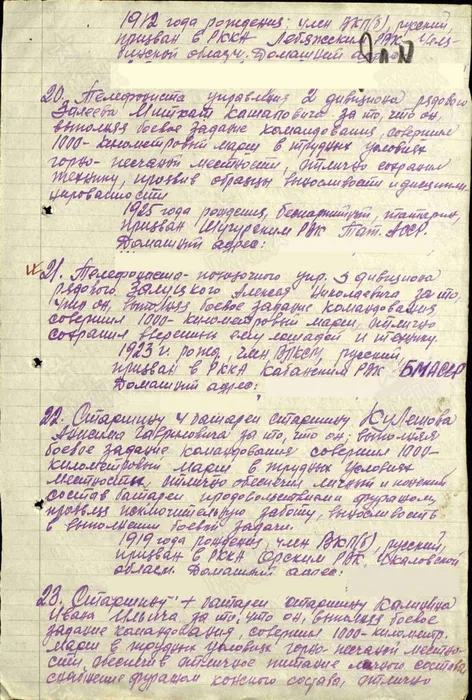 1912 года рождения, член ВКП(б), русский,
призван в РККА Лебяжским РВК, Челя-
бинской области. Домашний
20. Телефониста управления 2 дивизиона рядового
за то, что он,
выполняя боевое задание командования, совершил
1000-километровый марш в трудных условиях
горно-песчаной местности, отлично сохранил
технику, проявив образцы выносливости и дисципли-
нированности
1925 года рождения, беспартийный, татарин,
призван РВК Тат. АССР.
Домашний адрес:
21. Телефониста упр. 3 дивизиона
рядового Залуцкого Алексея Николаевича за то,
что он, выполняя боевое задание командования
совершил 1000-километровый марш, отлично
сохранил вверенных ему лошадей и технику.
1923 г. рожд., член ВЛКСМ, русский,
призван в РККА Кабанским РВК БМАССР
Домашний адрес:
22. Старшину 4 батареи старшину Кулешова
Гавриловича за то, что он, выполняя
боевое задание командования совершил 1000-
километровый марш в трудных условиях
местности, отлично обеспечил личный и конский
состав батареи продовольствием и фуражом,
проявляя исключительную заботу, выносливость
в выполнении боевой задачи.
1919 года рождения, член ВКП(б), русский,
призван в РККА Орским РВК, Чкаловской
области. Домашний адрес:
23. Старшину батареи старшину Калинина
Ивана Ильича за то, что он, выполняя боевое
задание командования, совершил 1000-километр.
марш в трудных условиях горно-песчаной местно-
сти, обеспечив отличное питание личного состава
снабжение фуражом конского состава, отлично